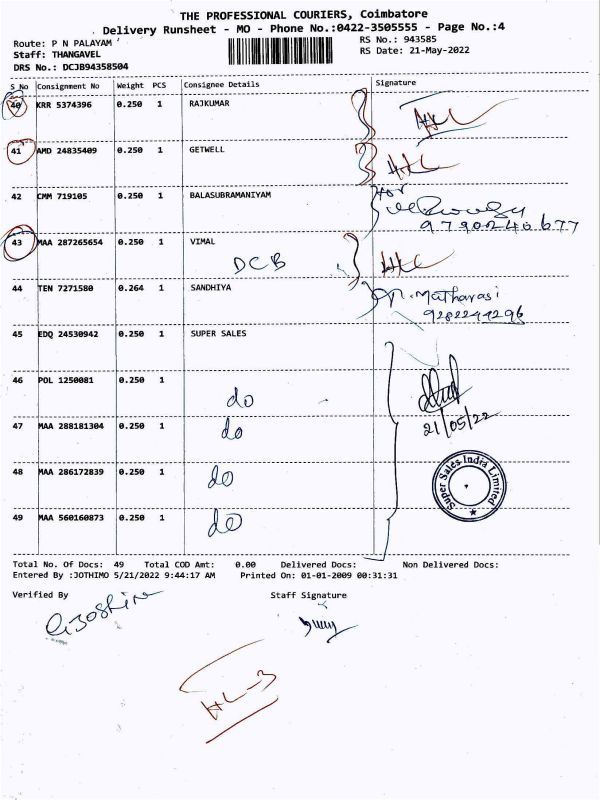 THE PROFESSIONAL COURIERS, Coimbatore
Delivery Runsheet - MO - Phone No.:0422-3505555 - Page No.:4
Route: P N PALAYAM
RS No.: 943585
Staff: THANGAVEL
RS Date: 21-May-2022
DRS No.: DCJB94358504
S No Consignment No Weight PCS Consignee Details Signature
40 KRR 5374396 0.250 1 RAJKUMAR
41 AMD 24835409 0.250 1 GETWELL
42 CMM 719105 0.250 1 BALASUBRAMANIYAM
9790240677
43 MAA 287265654 0.250 1 VIMAL
DCB
44 TEN 7271580 0.264 1 SANDHIYA
Matharasi
9282244296
45 EDQ 24530942 0.250 1 SUPER SALES
46 POL 1250081 0.250 1
do
47 MAA 288181304 0.250 1
do
21/05/22
48 MAA 286172839 0.250 1
do
Super Sales India Limited
49 MAA 560160873 0.250 1
do
Total No. Of Docs: 49 Total COD Amt: 0.00 Delivered Docs: Non Delivered Docs:
Entered By :JOTHIMO 5/21/2022 9:44:17 AM Printed On: 01-01-2009 00:31:31
Verified By Staff Signature